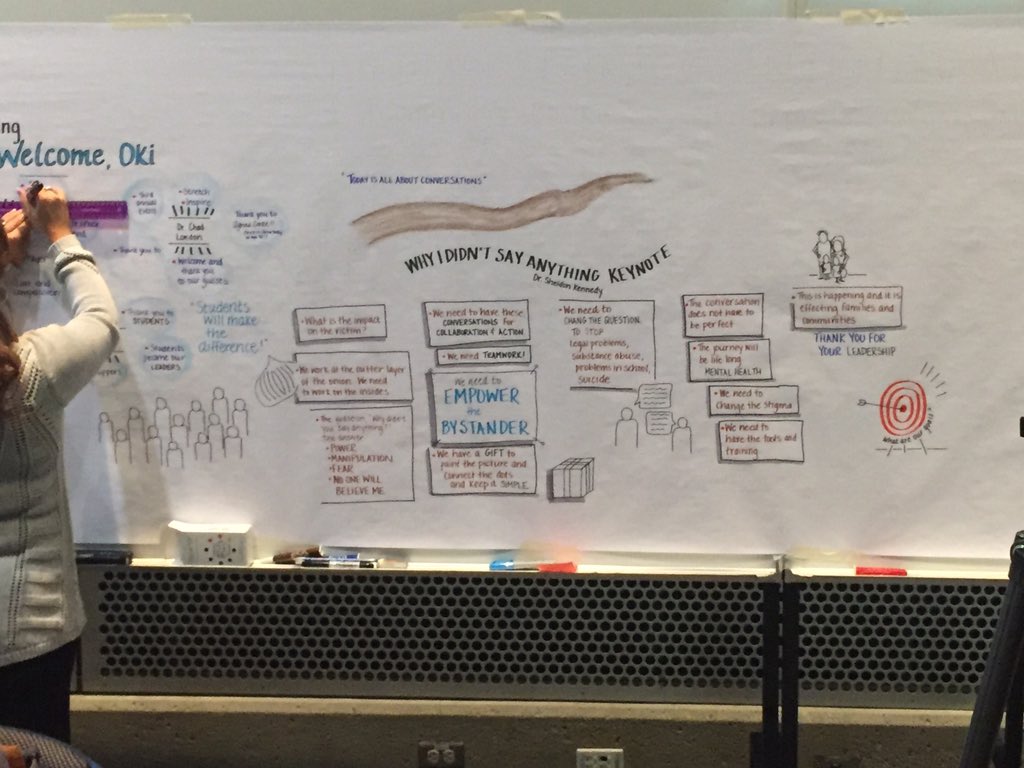 ng
Welcome, Oki
• third
annual
event
• Stretch
• Inspire
Dr. Chad
London
Thank you to
• Thank you to
• Welcome and
thank you
to our guests
• Thank you to
STUDENTS
"Students
will make
the
difference!"
• Students
became our
LEADERS
"TODAY IS ALL ABOUT CONVERSATIONS"
WHY I DIDN'T SAY ANYTHING KEYNOTE
Dr. Sheldon Kennedy
• What is the impact
on the victim?
• We work at the outter layer
of the onion. We need
to work on the insides
• The question "Why didn't
you say anything?"
the answer
• POWER
• MANIPULATION
• FEAR
• NO ONE WILL
BELIEVE ME
• We need to have these
CONVERSATIONS for
COLLABORATION & ACTION
• We need TEAMWORK!
We need to
EMPOWER
the
BYSTANDER
• We have a GIFT to
paint the picture and
connect the dots
and keep it SIMPLE
• We need to
CHANGE THE QUESTION
TO STOP
legal problems,
substance abuse,
problems in school,
suicide
• The conversation
does not have to
be perfect
• The journey will
be life long
MENTAL HEALTH
• We need to
change the stigma
• We need to
have the tools and
training
• This is happening and it is
effecting families and
communities
THANK YOU FOR
YOUR LEADERSHIP
What are our goals?